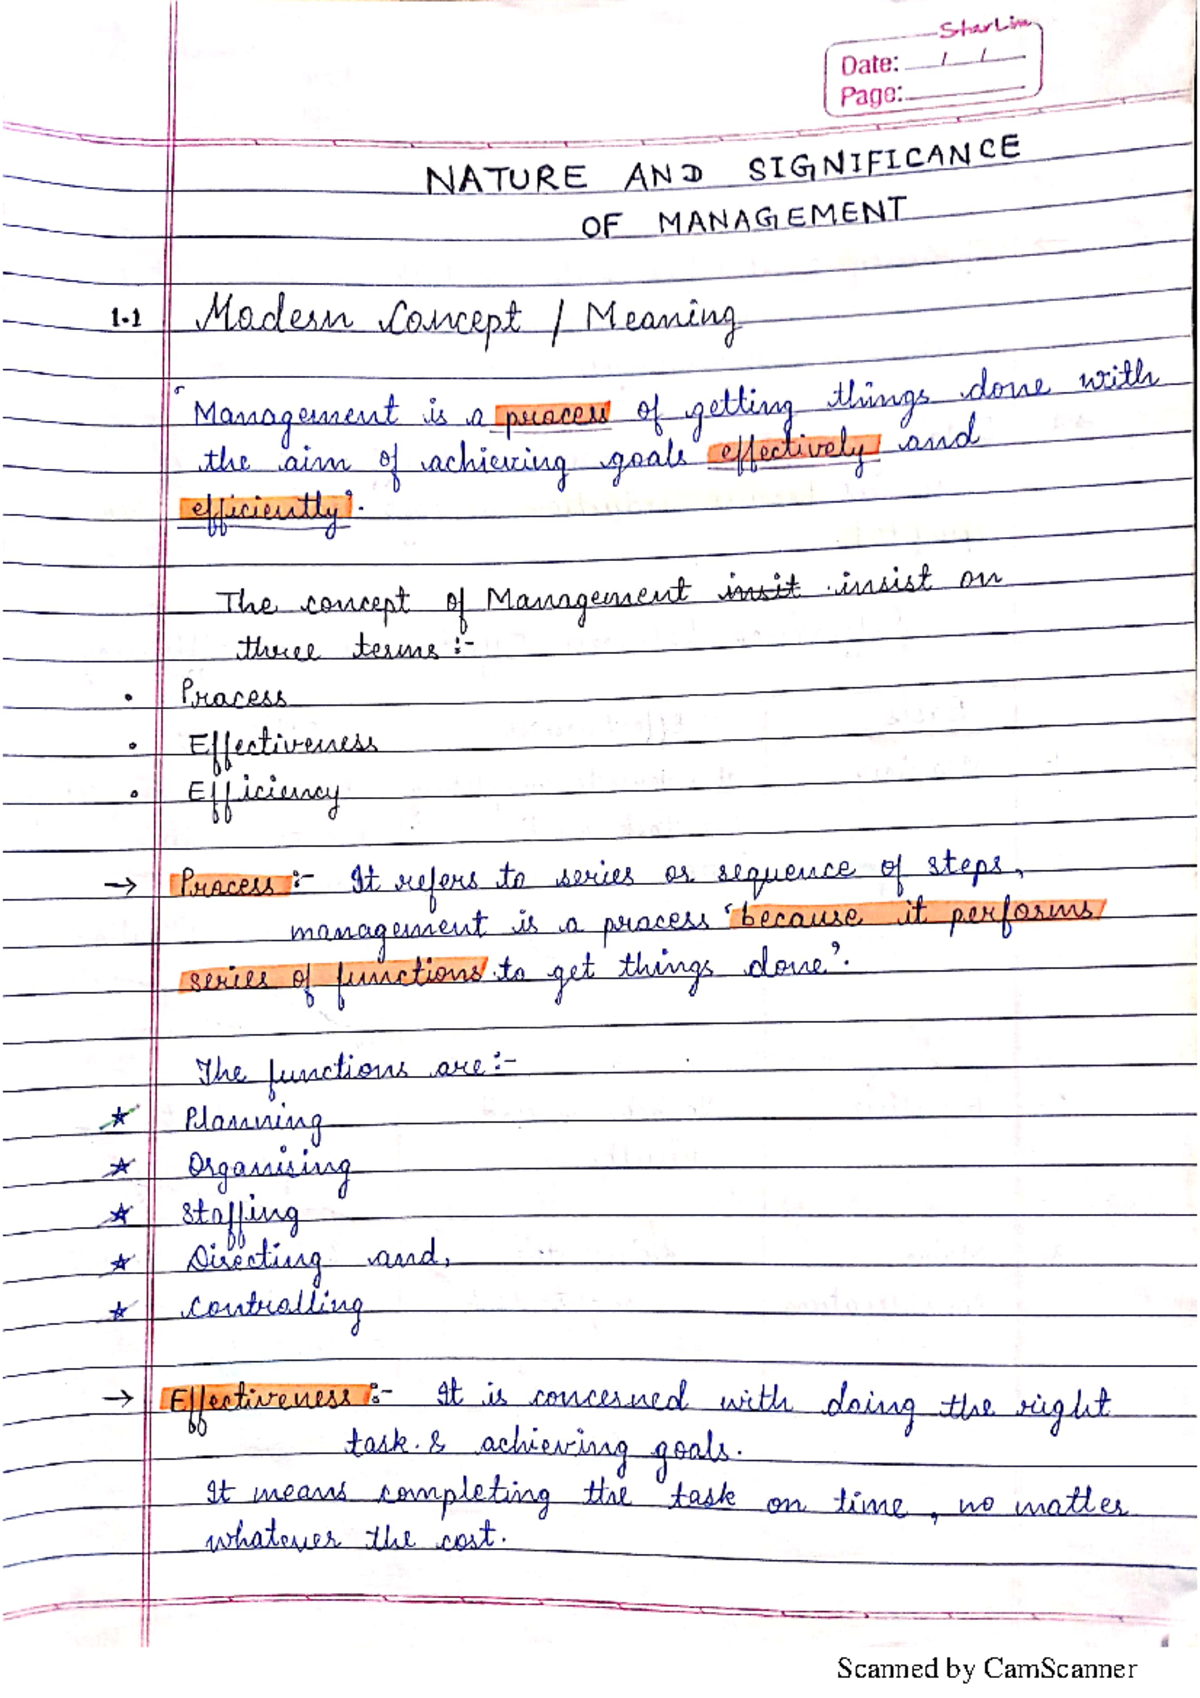 StarLine
Date: / /
Page:
NATURE AND SIGNIFICANCE
OF MANAGEMENT
1.1 Modern Concept / Meaning
'Management is a process of getting things done with
the aim of achieving goals effectively and
efficiently'.
The concept of Management insit insist on
three terms :-
• Process
• Effectiveness
• Efficiency
→ Process :- It refers to series or sequence of steps,
management is a process 'because it performs
series of functions to get things done'.
The functions are :-
★ Planning
★ Organising
★ Staffing
★ Directing and,
★ Controlling
→ Effectiveness :- It is concerned with doing the right
task & achieving goals.
It means completing the task on time, no matter
whatever the cost.
Scanned by CamScanner